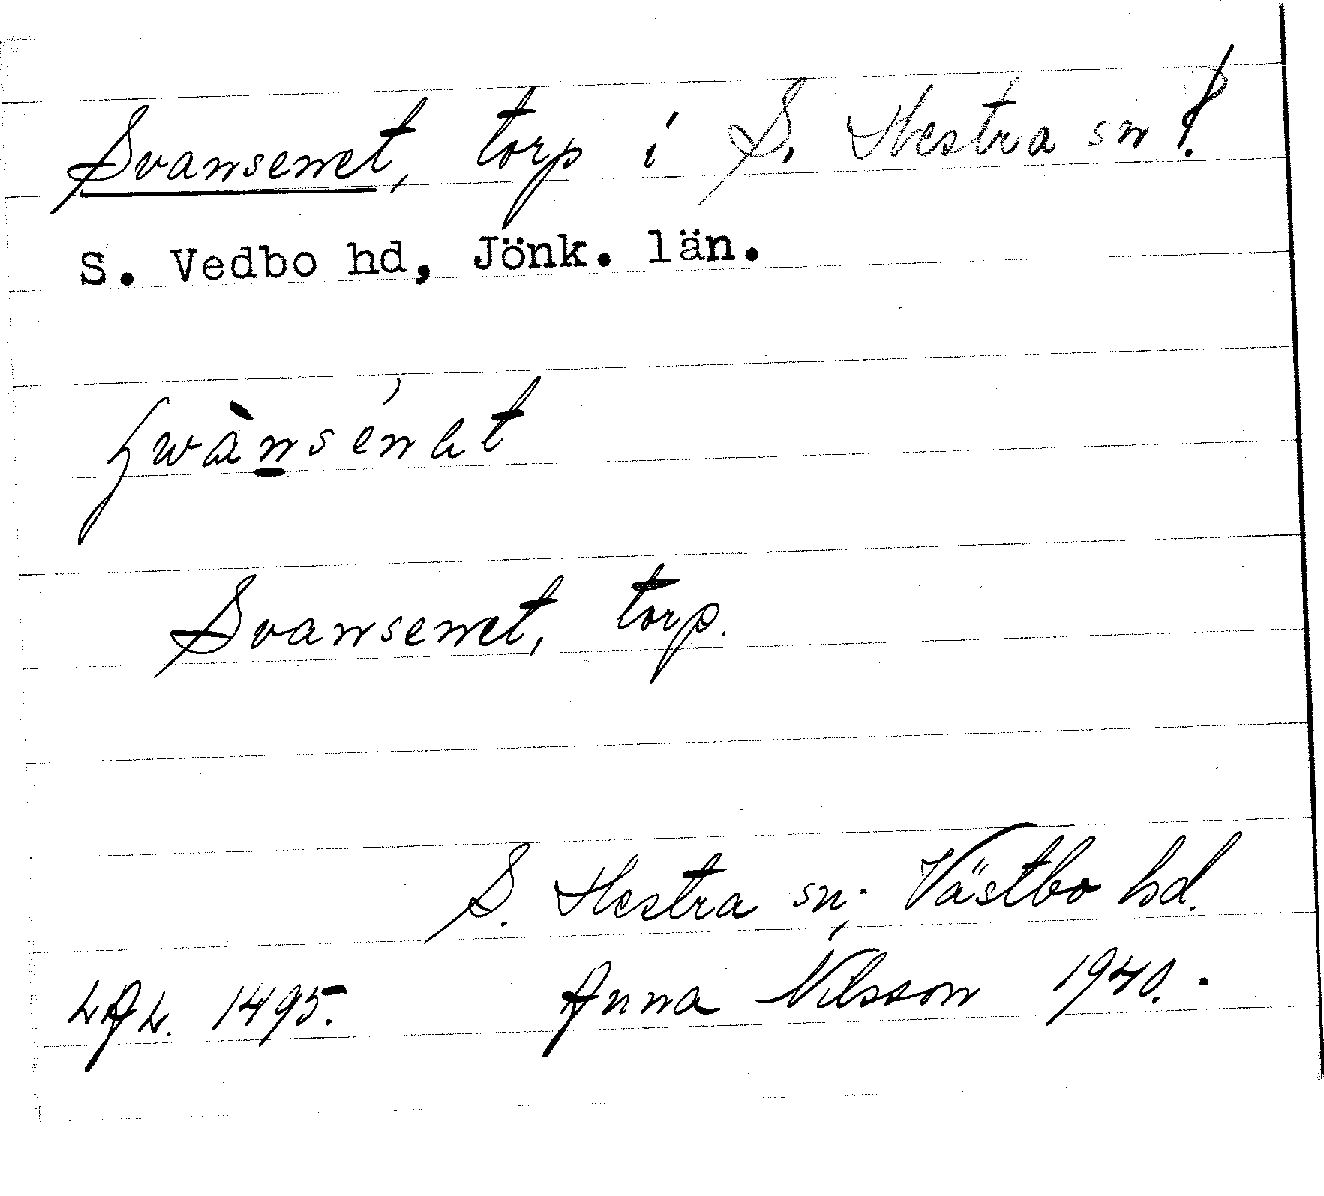 Svansenet, torp i S. Hestra sn
S. Vedbo hd, Jönk. län.
Svansenet, torp.
S. Hestra sn, Västbo hd.
1495. Anna Nilsson 1940.